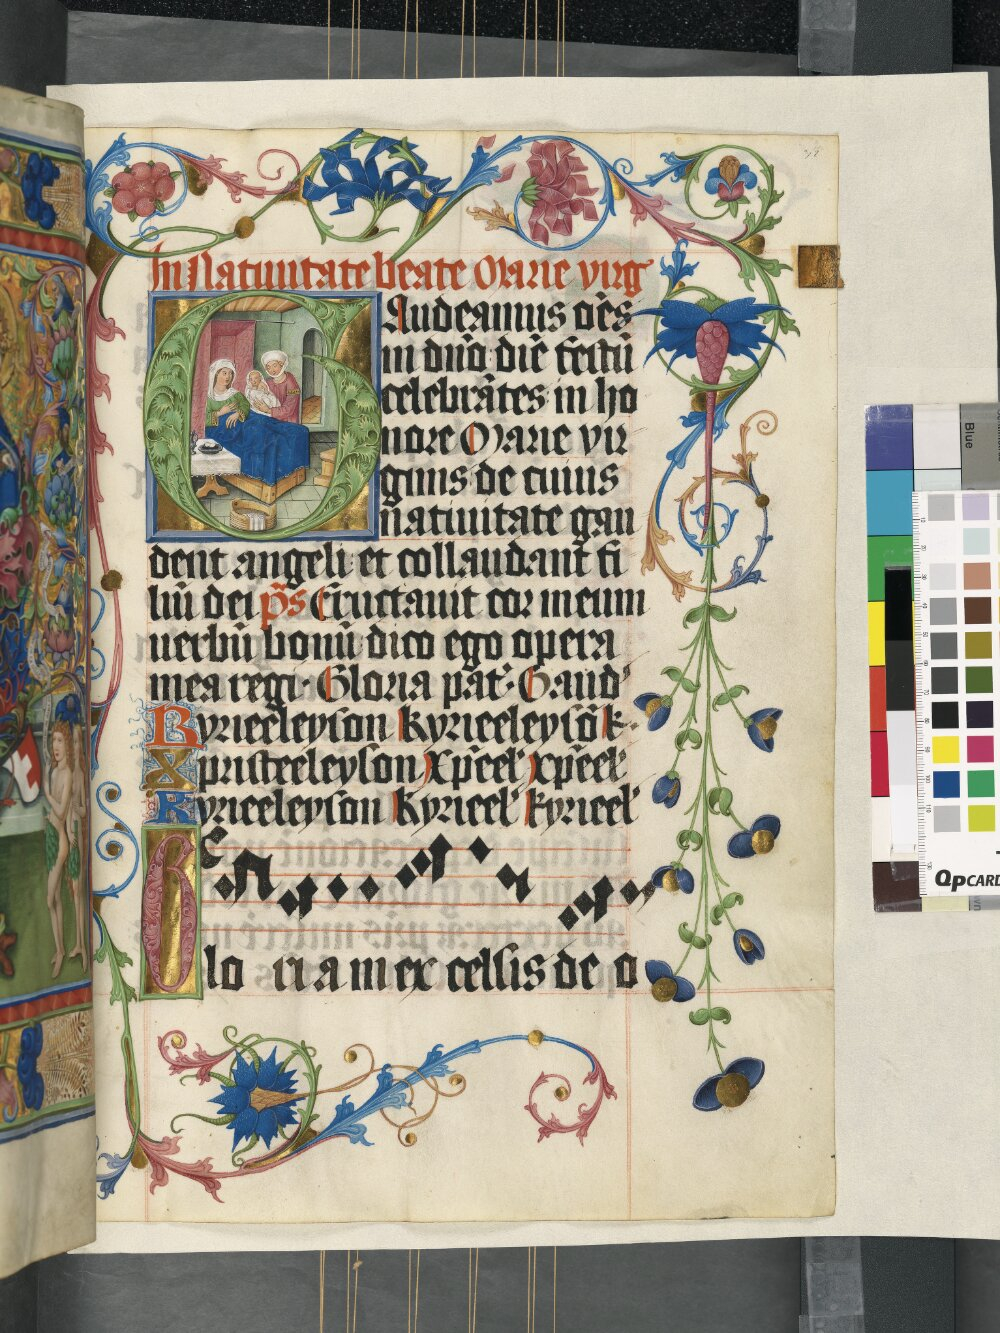 In Natiuitate beate Marie virg
Gaudeamus oēs
in dn̄o diē festū
celebrātes in ho
nore Marie vir
ginis de cuius
natiuitate gau
dent angeli et collaudant fi
liū dei p̄s Eructauit cor meum
uerbū bonū dico ego opera
mea regi Gloria pat᷎ Gaud᷎
Kyrieeleyson kyrieeleysō k
Xpristeeleyson Xp̄eel᷎ xp̄eel᷎
Kyrieeleyson kyrieel᷎ kyrieel᷎
Glo ria in ex celsis de o
Blue
QPCARD